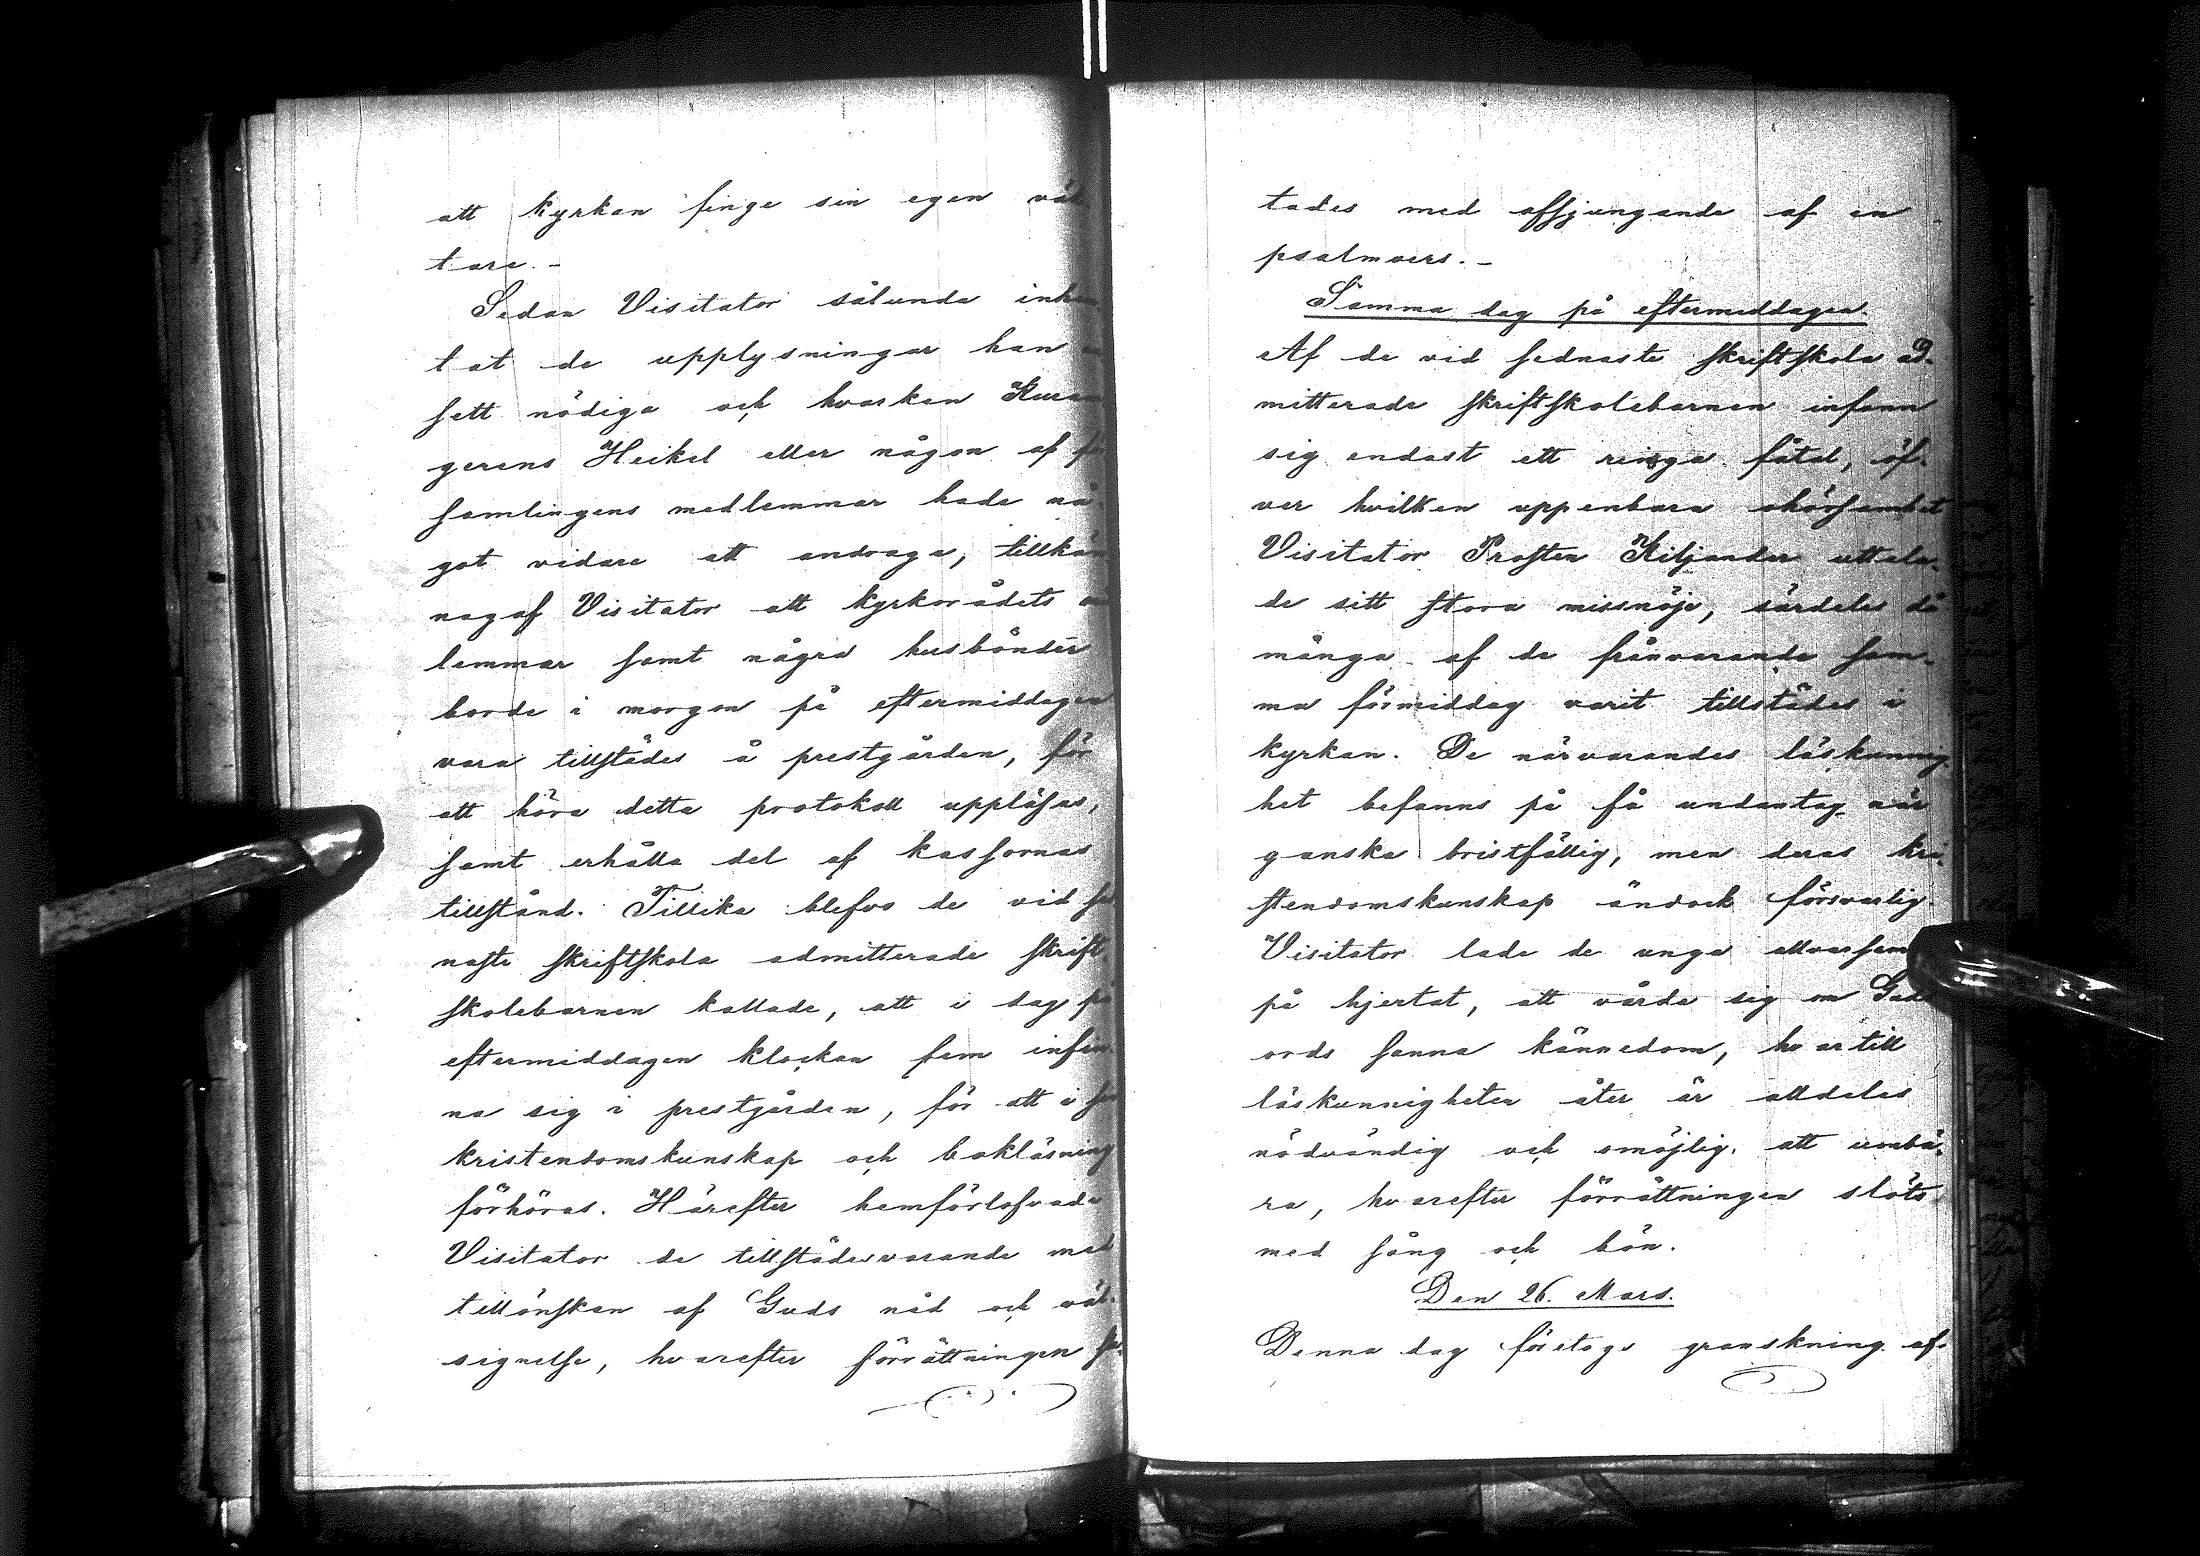 att kyrkan finge sin egen väk
tare. –
Sedan Visitator sålunda inhem
tat de upplysningar han
sett nödiga och hvarken
gerens Heikel eller någon af
samlingens medlemmar hade nå-
got vidare att andraga, tillkän
nagaf Visitator att kyrkorådets
lemmar samt några husbönder
borde i morgon på eftermiddagen
vara tillstädes å prestgården, för
att höra detta protokoll uppläsas,
samt erhålla del af kassornas
tillstånd. Tillika blefvo de vid
naste skriftskola admitterade skrift
skolebarnen kallade, att i dag på
eftermiddagen klockan fem infin-
na sig i prestgården, för att i
kristendomskunskap och bokläsning
förhöras. Härefter hemförlofvade
Visitator de tillstädesvarande med
tillönskan af Guds nåd och väl-
signelse, hvarefter förrättningen
tades med afsjungande af en
psalmvers. –
Samma dag på eftermiddagen.
Af de vid sednaste skriftskola ad-
mitterade skriftskolebarnen infann
sig endast ett ringa fåtal, öf-
ver hvilken uppenbara ohörsamhet
Visitator Prosten Kiljander uttala-
de sitt stora missnöje, särdeles då
många af de frånvarande sam-
ma förmiddag varit tillstädes i
kyrkan. De närvarandes läskunnig
het befanns på få undantag när
ganska bristfällig, men deras kri-
stendomskunskap ändock försvarlig.
Visitator lade de unga allvarsamt
på hjertat, att vårda sig om Guds
ords sanna kännedom, hvartill
läskunnigheten åter är alldeles
nödvändig och omöjlig att umbä-
ra, hvarefter förrättningen slöts
med sång och bön.
Den 26. Mars.
Denna dag företogs granskning af